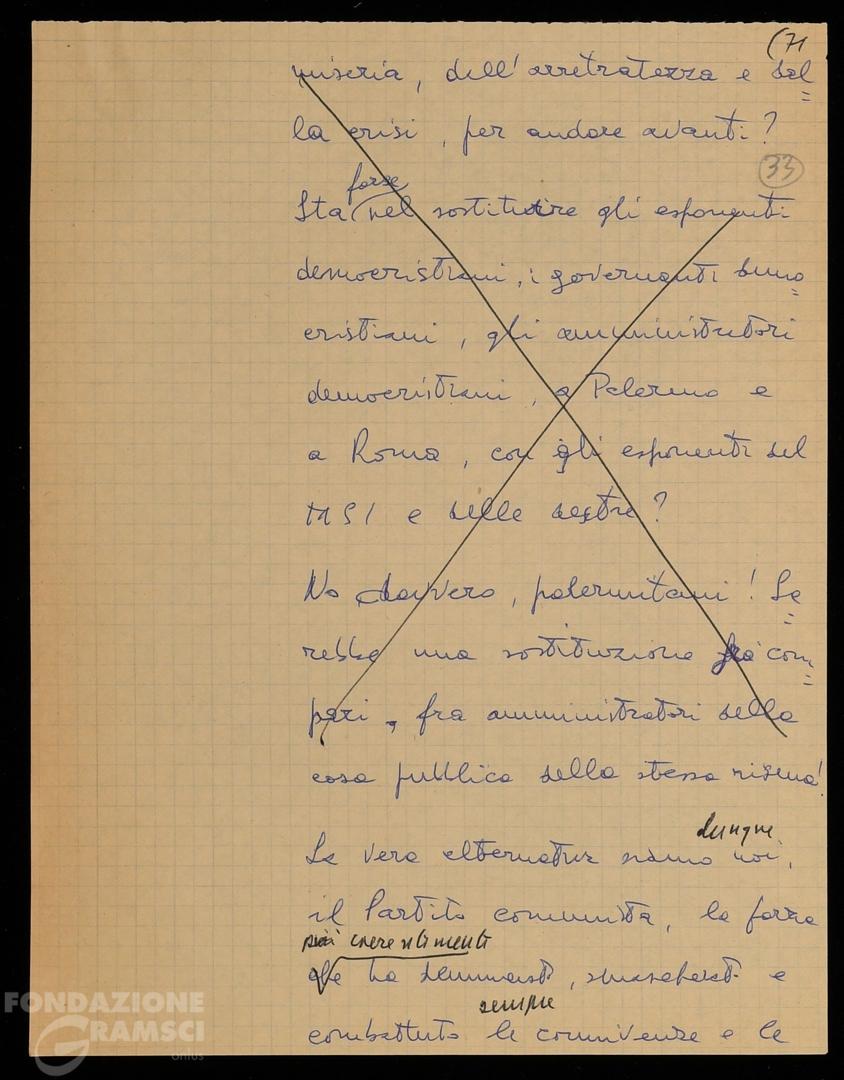 (71
miseria, dell'arretratezza e del=
la crisi, per andare avanti?
33
forse
Sta nel sostituire gli esponenti
democristiani, i governanti demo=
cristiani, gli amministratori
democristiani, a Palermo e
a Roma, con gli esponenti del
MSI e delle destre?
No davvero, palermitani! Sa=
rebbe una sostituzione fra com=
pari, fra amministratori della
cosa pubblica della stessa risma!
dunque
La vera alternativa siamo noi,
il Partito comunista, la forza
più coerentemente
che ha denunciato, smascherato e
sempre
combattuto le connivenze e le
FONDAZIONE
GRAMSCI
onlus